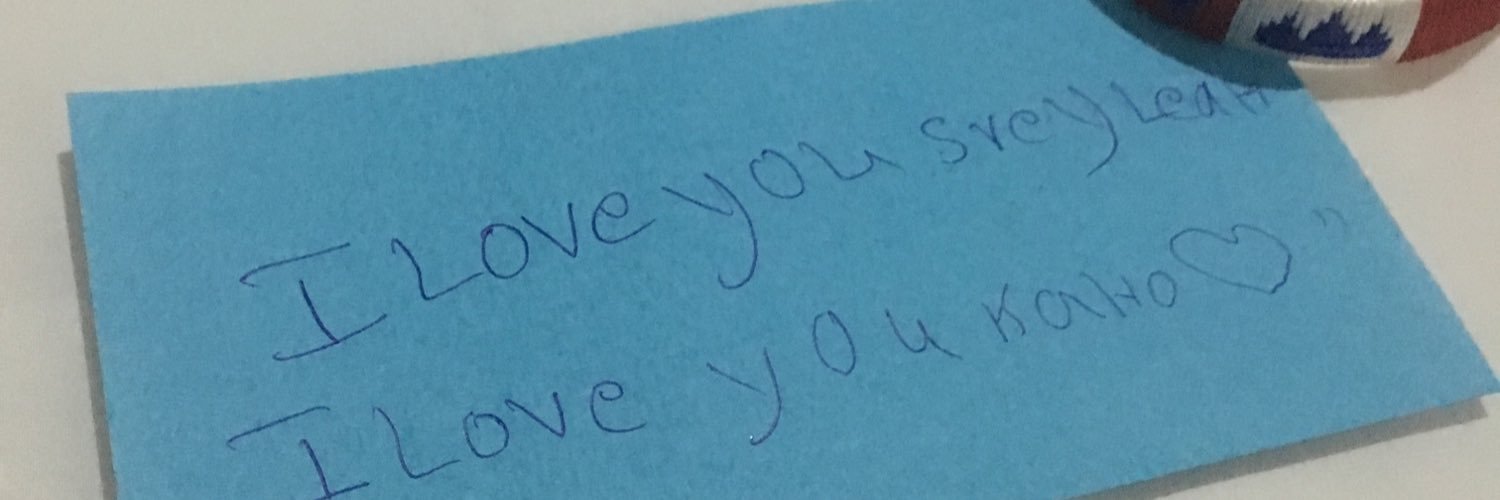 I Love you sreyLeaH
I Love you KaHo♡"